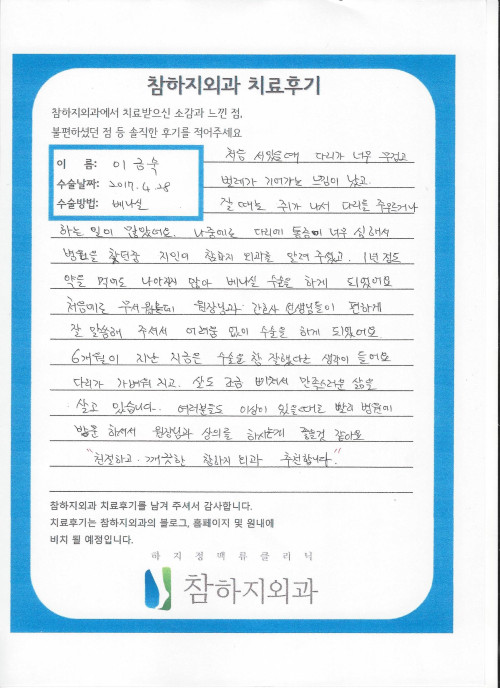 참하지외과 치료후기
참하지외과에서 치료받으신 소감과 느낀 점,
불편하셨던 점 등 솔직한 후기를 적어주세요
이 름: 이금숙
수술날짜: 2017. 4. 28
수술방법: 베나실
처음 서있을때 다리가 너무 무겁고
벌레가 기어가는 느낌이 났고.
잘때는 쥐가 나서 다리를 주무르거나
하는 일이 많았어요. 나중에는 다리에 통증이 너무 심해서
병원을 찾던중 지인이 참하지 외과를 알려 주셨고. 1년정도
약을 먹어도 나아지지 않아 베나실 수술을 하게 되었어요
처음이로 무서웠는데 원장님과 간호사 선생님들이 편하게
잘 말씀해 주셔서 어려움 없이 수술을 하게 되었어요
6개월이 지난 지금은 수술을 참 잘했다는 생각이 들어요
다리가 가벼워 지고. 살도 조금 빠져서 만족스러운 삶을
살고 있습니다.. 여러분들도 이상이 있을때는 빨리 병원에
방문 하셔서 원장님과 상의를 하시는게 좋을것 같아요
"친절하고. 깨끗한 참하지 외과 추천합니다."
참하지외과 치료후기를 남겨 주셔서 감사합니다.
치료후기는 참하지외과의 블로그, 홈페이지 및 원내에
비치 될 예정입니다.
하지정맥류클리닉
참하지외과